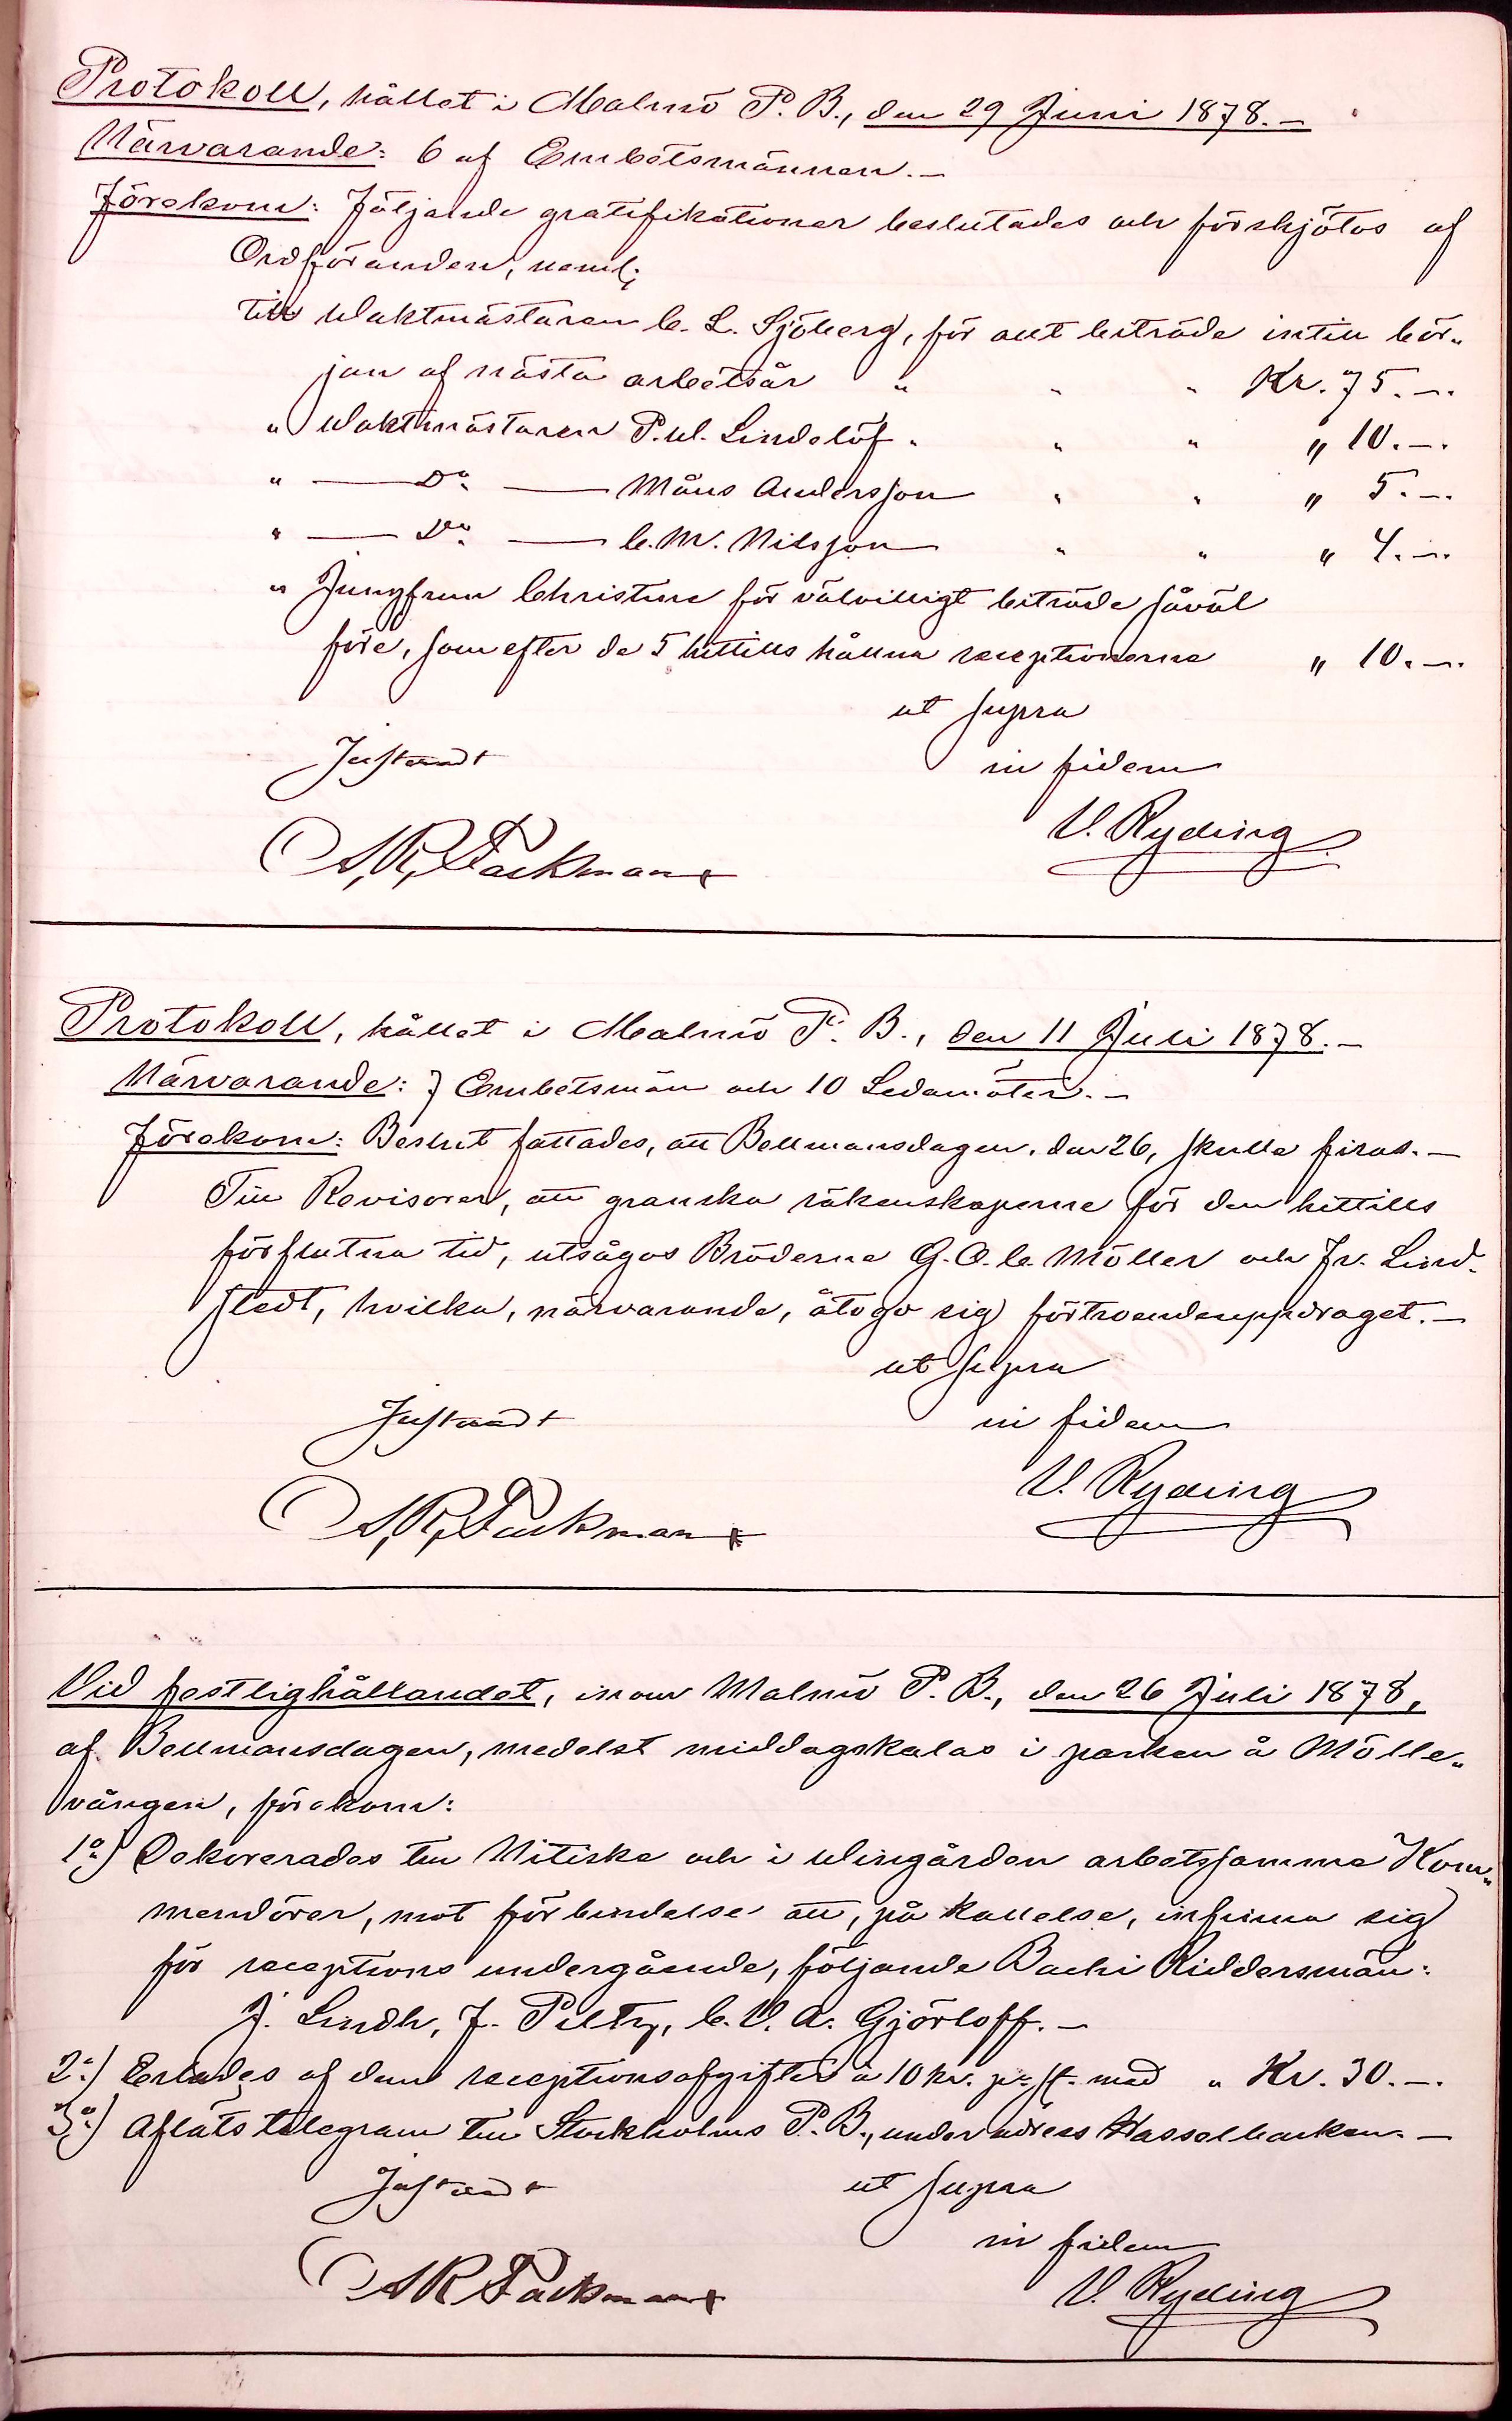 Protokoll, hållet i Malmö P. B., den 29 Juni 1878.—
Närvarande: 6 af Embetsmännen.—
Förekom: Följande gratifikationer beslutades och förskjötos af
Ordföranden, neml:
till Waktmästaren C. L. Sjöberg, för allt biträde intill bör„
jan af nästa arbetsår " " " Kr. 75.—.
" Waktmästaren P. W. Lindelöf " " " " 10.—.
" — Do: — Måns Andersson " " " 5.—.
" — Do: — C. M. Nilsson " " " 4.—.
" Jungfrun Christine för välvilligt biträde såväl
före, som efter de 5 hittills hållna receptionerna " 10.—.
ut supra
Justeradt in fidem
V. Ryding
A. R. Packman
Protokoll, hållet i Malmö P. B., den 11 Juli 1878.—
Närvarande: 7 Embetsmän och 10 Ledamöter.—
Förekom: Beslut fattades, att Bellmansdagen, den 26, skulle firas.—
Till Revisorer, att granska räkenskaperne för den hittills
förflutna tid, utsågos Bröderna G. O. C. Möller och Fr. Lind„
stedt, hvilka, närvarande, åtogo sig förtroendeuppdraget.—
ut supra
Justeradt in fidem
V. Ryding
A. R. Packman
Vid festlighållandet, inom Malmö P. B., den 26 Juli 1878,
af Bellmansdagen, medelst middagskalas i parken å Mölle„
vången, förekom:
1o:) Dekorerades till Nitiske och i Wingården arbetssamme Kom„
mendörer, mot förbindelse att, på kallelse, infinna sig
för receptions undergående, följande Bachi Riddersmän:
J. Lindh, F. Piltz, C. V. A. Gjörloff.—
2o:) Erlades af dem receptionsafgifter à 10 kr. pr st. med " Kr. 30.—.
3o:) Afläts telegram till Stockholms P. B., under adress Hasselbacken.—
Justeradt ut supra
in fidem
A R Packman V. Ryding